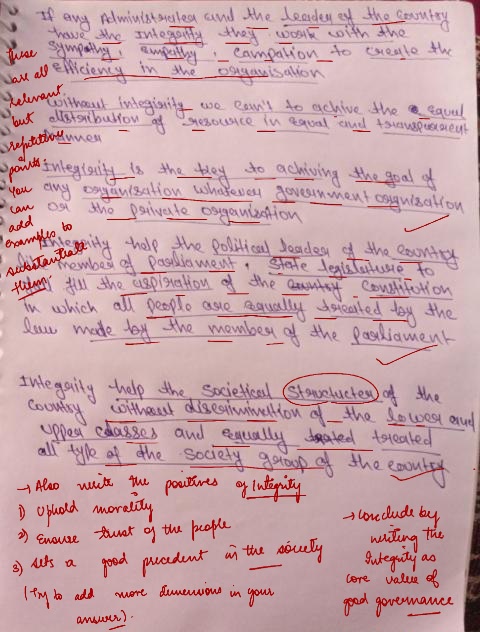 If any Administrater and the leader of the country
have the Integrity they work with the
Sympathy, empathy, campation to create the
efficiency in the organisation
Without integirity we can't to achive the equal
distribution of resource in equal and transparent
manner
Integirity is the key to achiving the goal of
any organisation whatever government orgnisation
or the private organisation
Integrity help the political leader of the country
member of parliament, state legislature to
full fill the aspiration of the country constitution
in which all people are equally treated by the
law made by the member of the parliament
Integrity help the societical structucter of the
country without discrimination of the lower and
upper classes and equally treated treated
all type of the society group of the country
these
are all
relevant
but
repetitive
points
you
can
add
examples to
substantiate
them.
→ Also write the positives of Integrity
1) Uphold morality
2) Ensure trust of the people
3) sets a good precedent in the society
(Try to add more dimensions in your
answer).
→ Conclude by
writing the
Integrity as
core value of
good governance